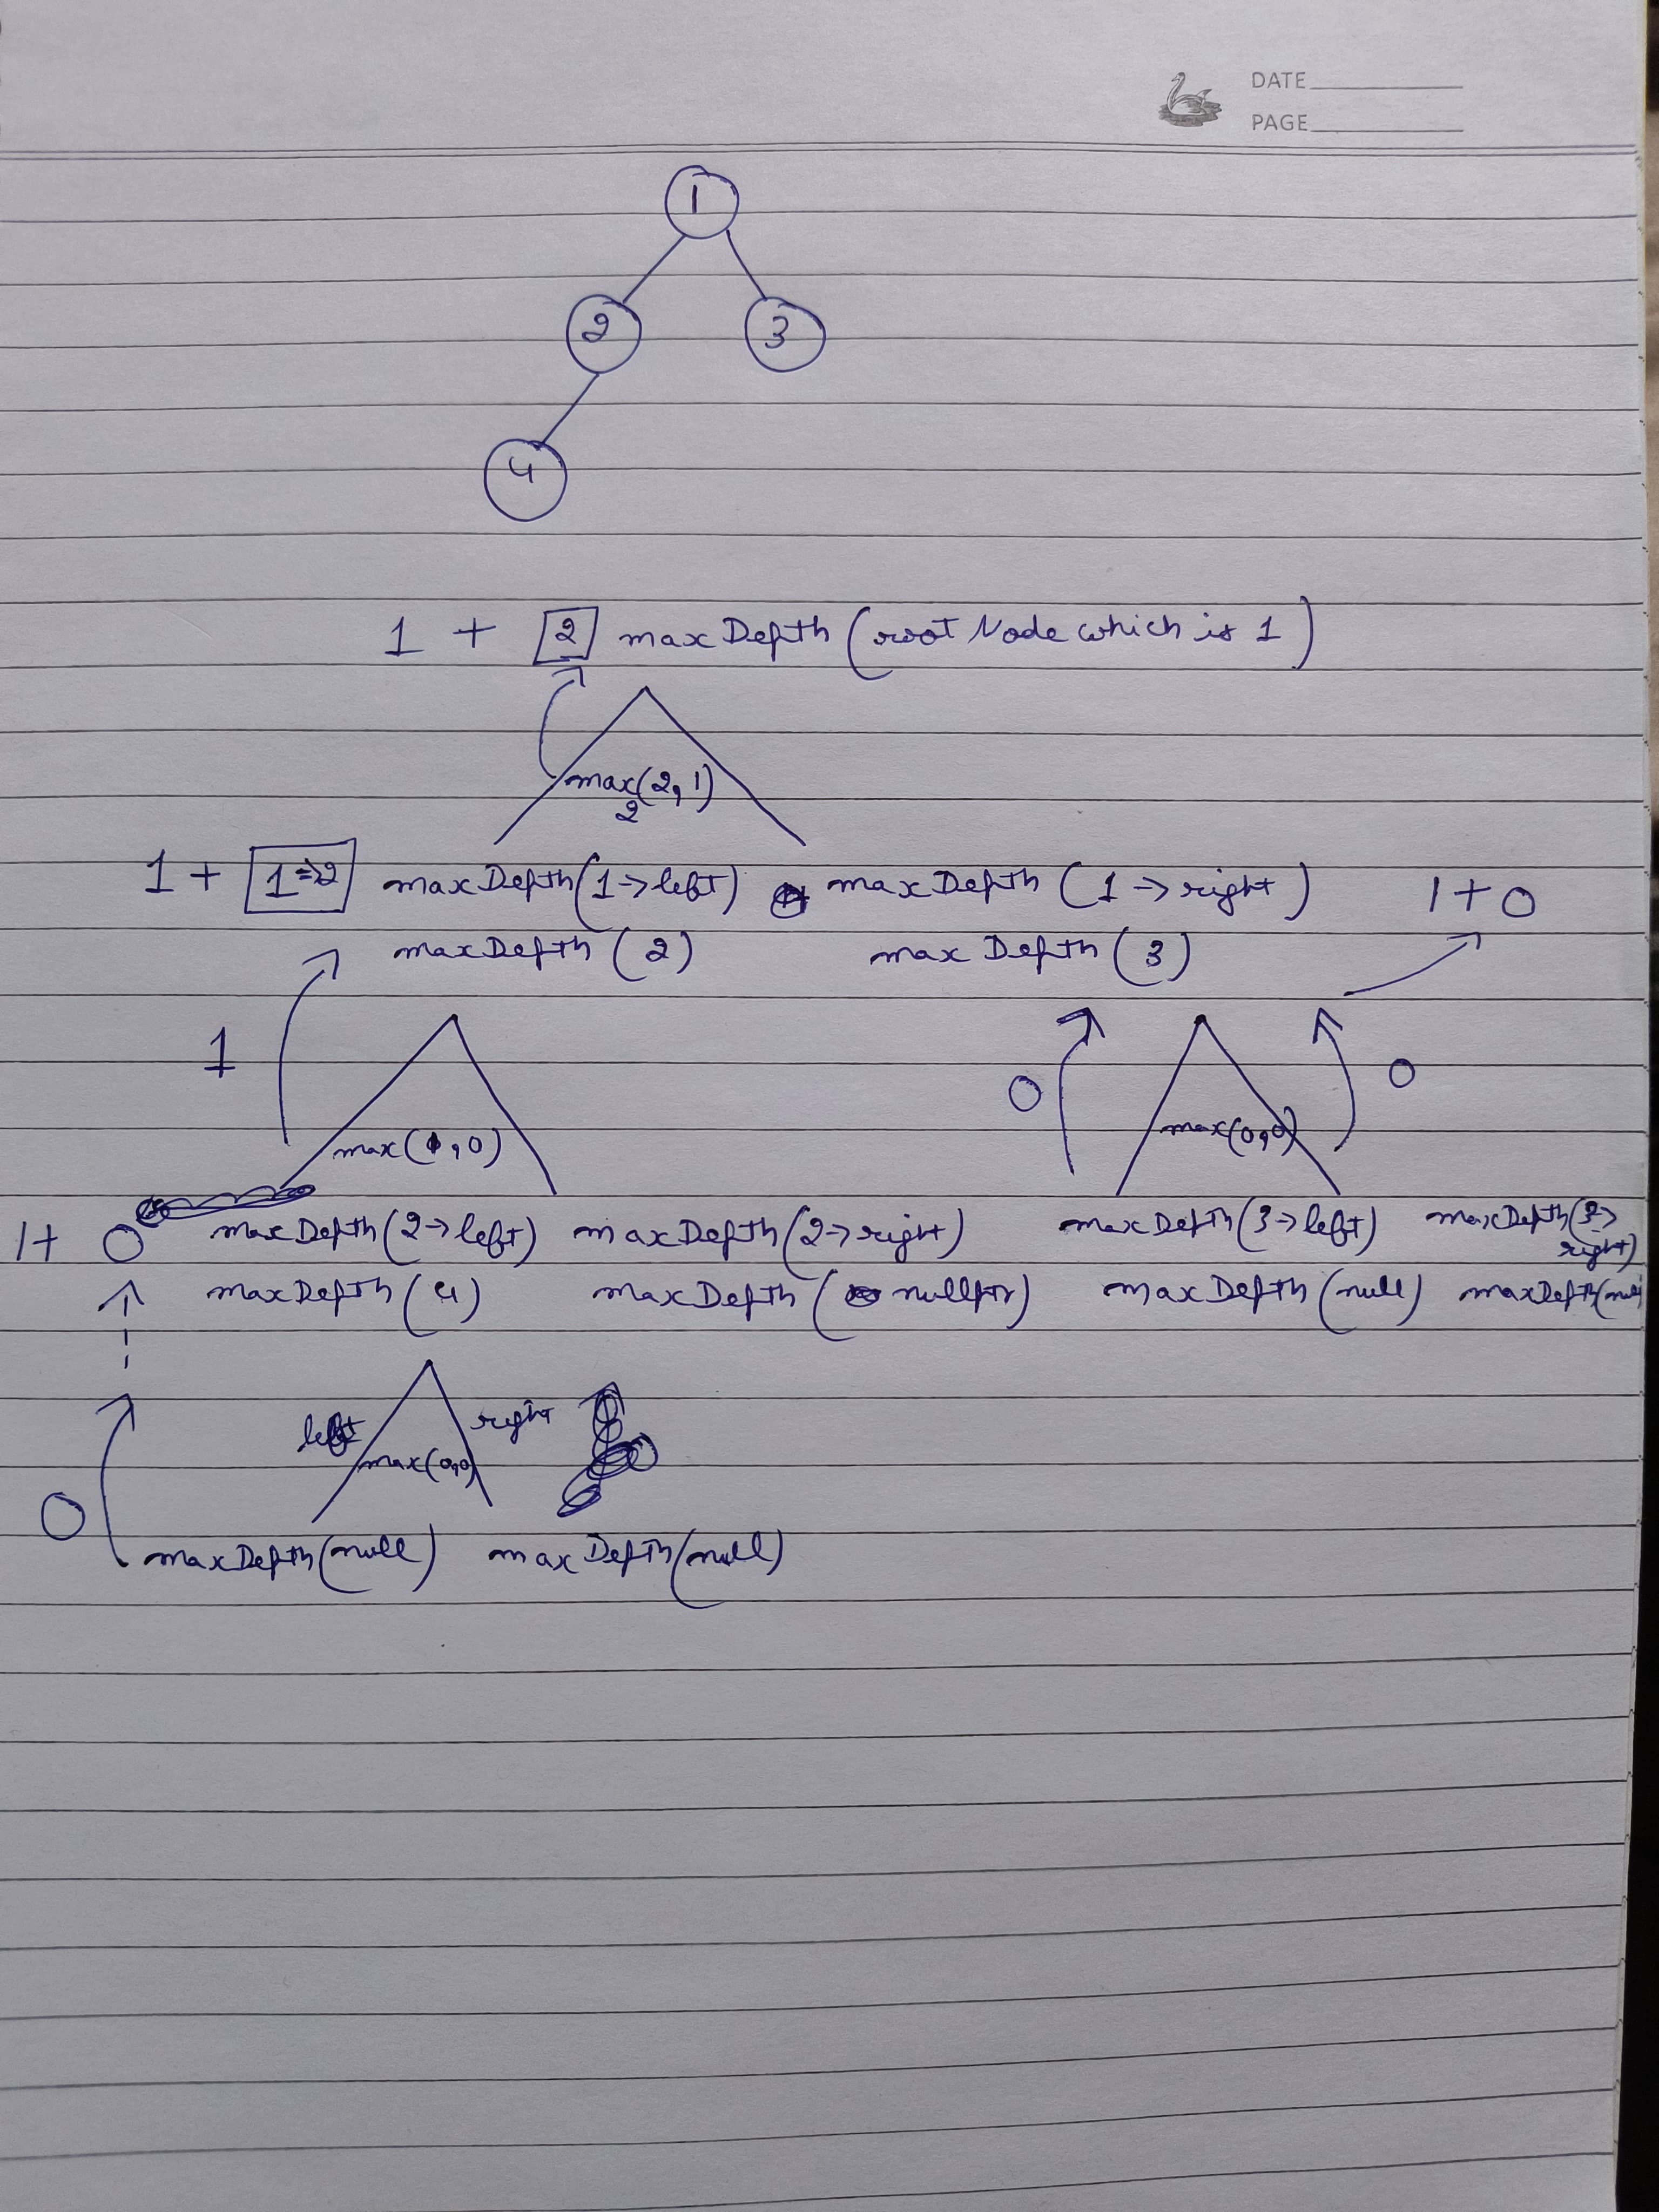 DATE
PAGE
1
2 3
4
1 + 2 maxDepth (root Node which is 1)
max(2,1)
2
1 + 1=>2 maxDepth(1->left) maxDepth (1->right) 1+0
maxDepth (2) maxDepth (3)
1 0 0
max(1,0) max(0,0)
1+ 0 maxDepth(2->left) maxDepth(2->right) maxDepth(3->left) maxDepth(3->
right)
maxDepth (4) maxDepth (nullptr) maxDepth (null) maxDepth(null
left right
max(0,0)
0
maxDepth(null) maxDepth(null)